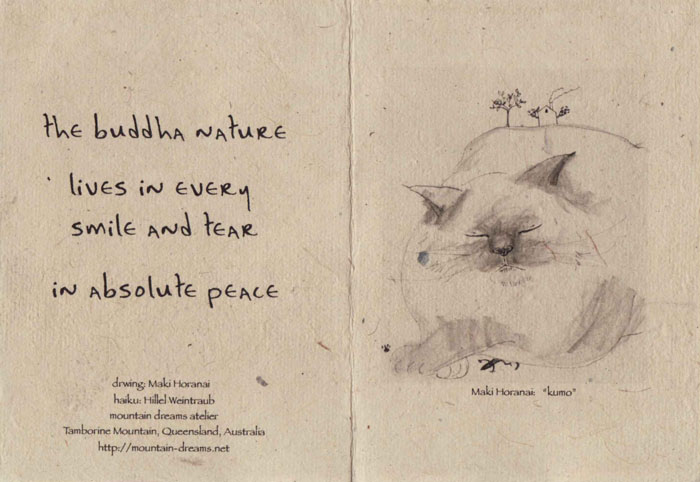 the buddha nature
lives in every
smile and tear
in absolute peace
drwing: Maki Horanai
haiku: Hillel Weintraub
mountain dreams atelier
Tamborine Mountain, Queensland, Australia
http://mountain-dreams.net
Maki Horanai: "kumo"